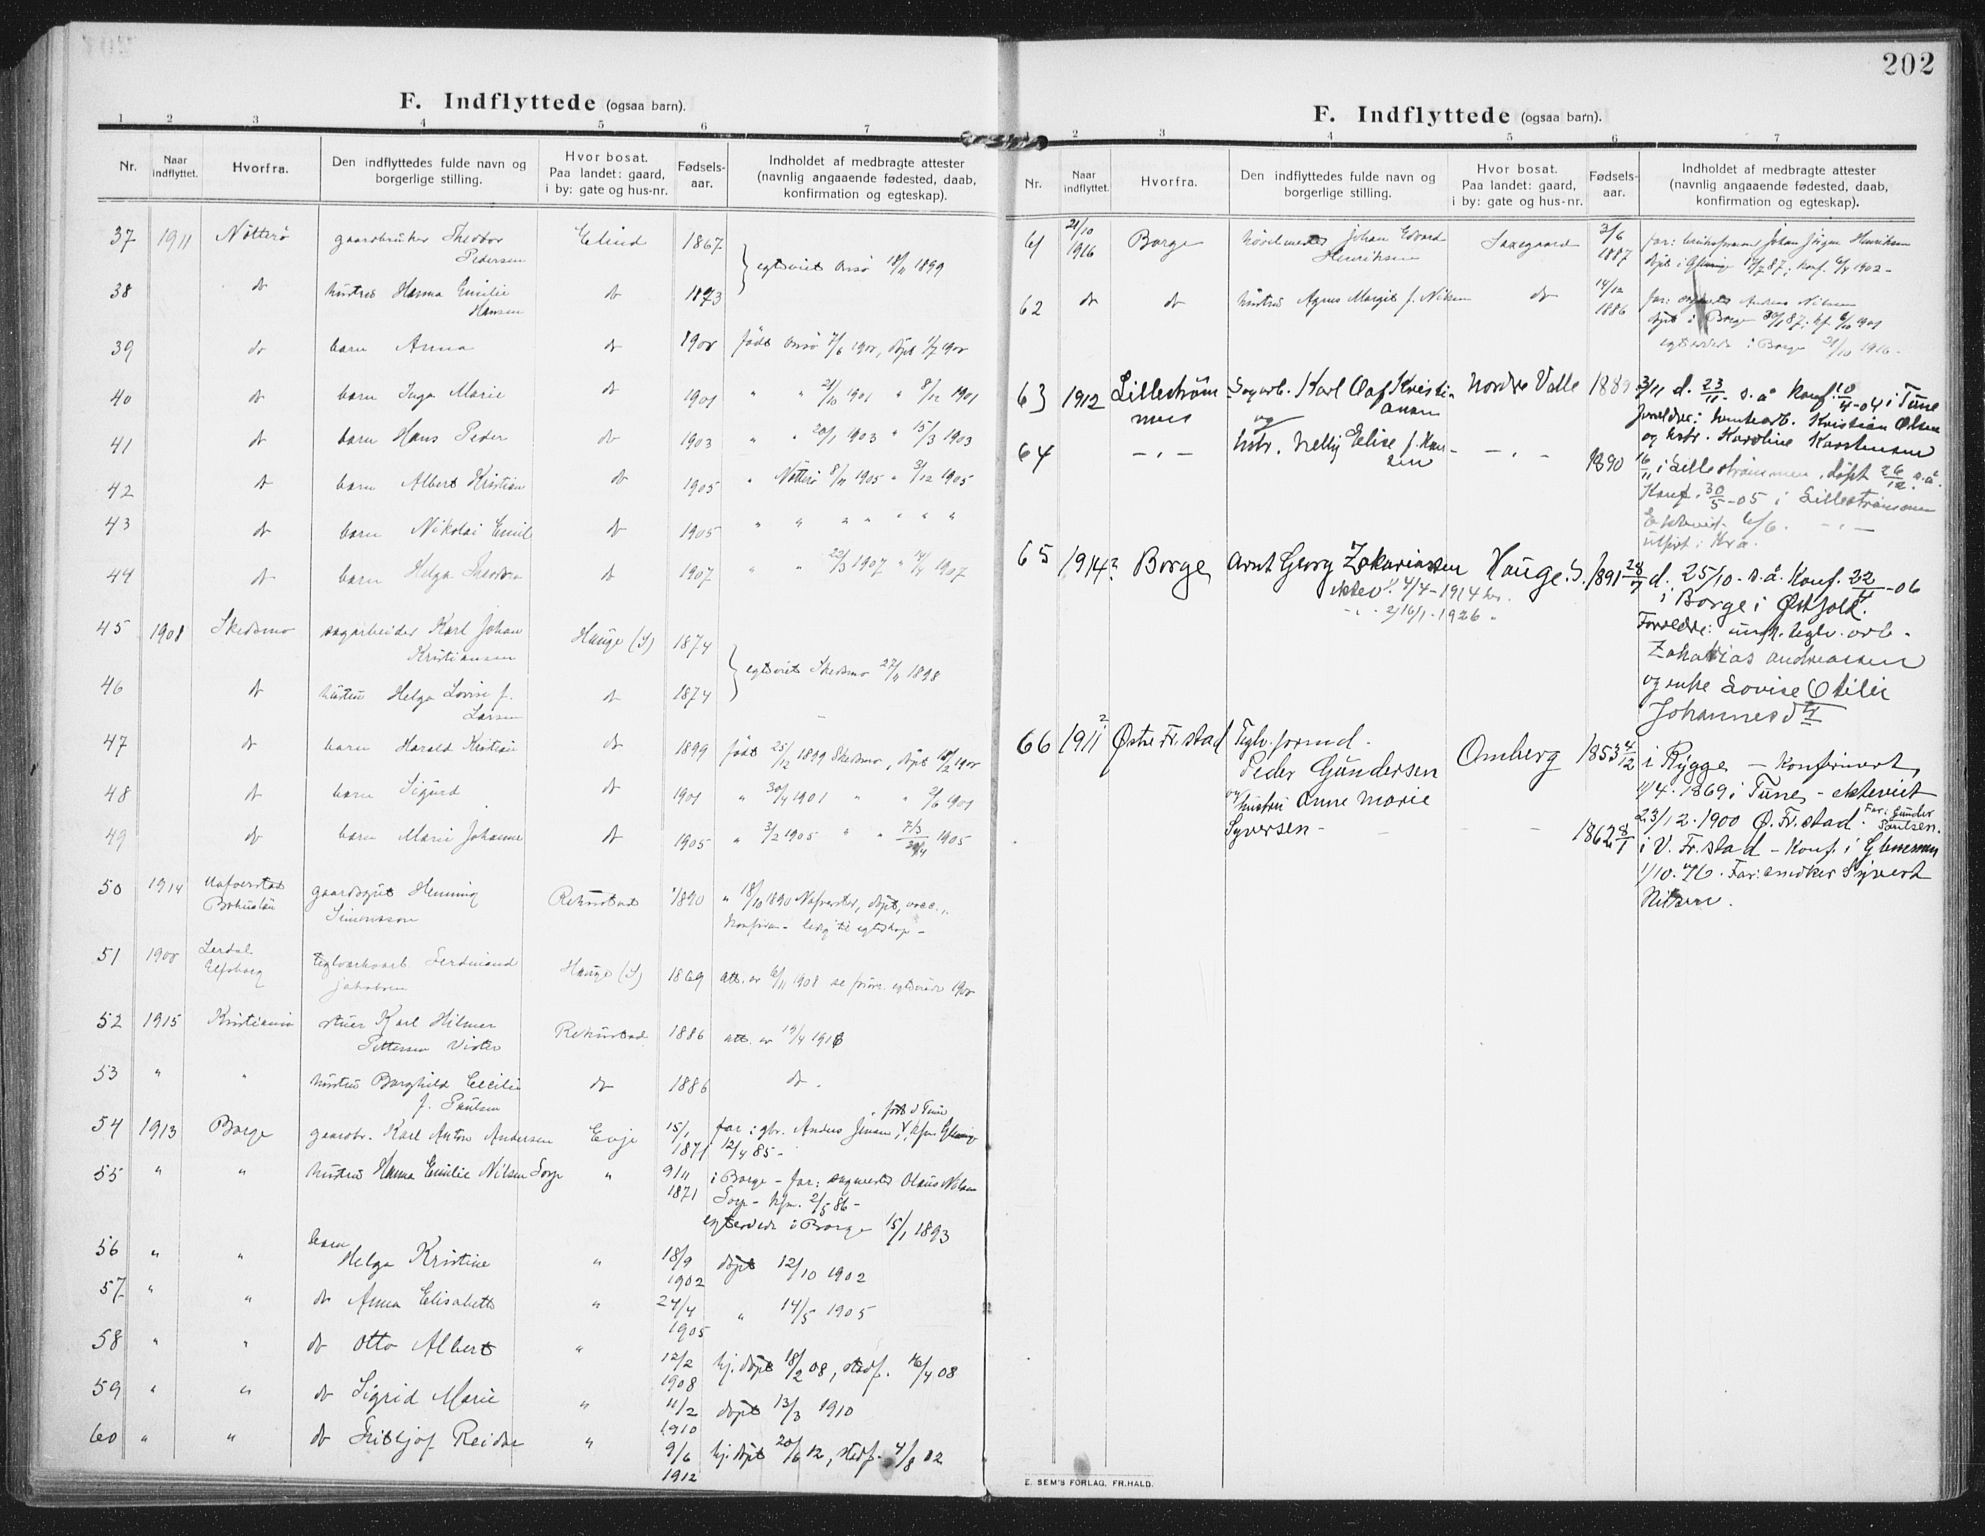 202
F. Indflyttede (ogsaa barn).
1 2 3 4 5 6 7
Nr. Naar indflyttet. Hvorfra. Den indflyttedes fulde navn og borgerlige stilling. Hvor bosat. Paa landet: gaard, i by: gate og hus-nr. Fødsels-aar. Indholdet af medbragte attester (navnlig angaaende fødested, daab, konfirmation og egteskap).
37 1911 Nøtterø gaardbruker Theodor Elind 1867
Pedersen
egtviet Onsø 1899
38 do hustru Hanna Emilie do 1873
Hansen
39 do barn Anna do 1900 født Onsø 1900, døpt 1/7 1900
40 do barn Inga Marie do 1901 " " 21/10 1901 " 8/12 1901
41 do barn Hans Peder do 1903 " " 20/1 1903 " 15/3 1903
42 do barn Albert Kristian do 1905 " Nøtterø 8/11 1905 " 3/12 1905
43 do barn Nikolai Emil do 1905 " " " " " " "
44 do barn Helga Theodora do 1907 " " 22/3 1907 " 1907
45 1908 Skedsmo sagarbeider Karl Johan Hauge (S) 1874
Kristiansen
egtviet Skedsmo 27/11 1898
46 do hustru Helga Lovise f. do 1874
Larsen
47 do barn Harald Kristian do 1899 født 25/12 1899 Skedsmo, døpt 18/2 1900
48 do barn Sigurd do 1901 " 30/4 1901 " " 2/6 1901
49 do barn Marie Johanne do 1905 " 3/2 1905 " " 7/3 1905
50 1914 Nafverstad gaardsgut Henning Rekustad 1890 " 18/10 1890 Nafverstad, døpt, vacc.,
Bohuslän Simonsson konfirm. - ledig til egteskap -
51 1908 Lerdal teglverksarb. Ferdinand Hauge (S) 1869 att. av 6/11 1908 egtviede 1900
Elfsborg Jakobsen
52 1915 Kristiania stuer Karl Hilmar Rekustad 1886 att. av 19/4 1916
Pettersen Vister
53 " " hustru Borghild Cecilie do 1886 do.
f. Paulsen
54 1913 Borge gaardbr. Karl Anton Andersen Evje 15/1 1871 far: gbr. Anders Jensen, født i Tune
12/4 85 -
55 " " hustru Hanna Emilie Nilsen Torp " 9/11 1871 i Borge - far: Olaus Nilsen
Torp - kfm. 2/5 86 -
egtviede i Borge 15/1 1893
56 " " barn Helga Kristine " 18/9 1902 døpt 12/10 1902
57 " " do Anna Elisabeth " 24/4 1905 " 14/5 1905
58 " " do Otto Albert " 12/2 1908 hj. døpt 18/2 08, stadf. 16/4 08
59 " " do Sigrid Marie " 11/2 1910 døpt 13/3 1910
60 " " do Fritjof Reidar " 9/6 1912 hj. døpt 20/6 12, stadf. 4/8 12
F. Indflyttede (ogsaa barn).
2 3 4 5 6 7
Nr. Naar indflyttet. Hvorfra. Den indflyttedes fulde navn og borgerlige stilling. Hvor bosat. Paa landet: gaard, i by: gate og hus-nr. Fødsels-aar. Indholdet af medbragte attester (navnlig angaaende fødested, daab, konfirmation og egteskap).
61 21/10 1916 Borge Johan Edvard Saxegaard 3/6 1887 far: Johan Jørgen Henriksen
Henriksen døpt i Glemminge 87; konf. 1902 -
62 do do hustru Agnes Margit f. Nilsen do 14/12 1886 far: Andreas Nilsen
døpt i Borge 30/1 87; kf. 1901
egtviede i Borge 21/10 1916 -
63 1912 Lillestrømmen Sagarb. Karl Olaf Kristiansen Nordre Valle 1889 3/11 d. 23/11 s.å. Konf. 10/4-04 i Tune
og Forældre: Kristian Olsen
og hstr. Karoline Karstensen
64 -,- hstr. Nelly Elise f. Hansen -,- 1890 16/11 i Lillestrømmen, døpt 26/12 s.å.
Konf. 30/5-05 i Lillestrømmen
Ektevit 6/6. -,-
utført i Kra.
65 1914? Borge Arnt Georg Zakariassen Hauge S. 1891 28/7 d. 25/10 - s.å. Konf. 22/4-06
ektev. 1) 4/4-1914 i Borge i Østfold.
-,- 2) 16/1-1926 " Forældre: teglv. arb.
Zakarias Andreassen
og enke Lovise Otilie
Johannesd.
66 1911 Østre Fr.stad Teglv. formd. Omberg 1853 4/12 i Rygge - Konfirmert
Peder Gundersen 1/4-1869 i Tune - ektevit
og hustru Anne Marie 23/12-1900 Ø. Fr.stad. Far: Gunder Paulsen.
Syversen - - - 1862 8/1 i V. Fr.stad - Konf. i Glemmen
1/10.76. Far: smoker Syvert
Nilsen.
E. SEM'S FORLAG, FR.HALD.